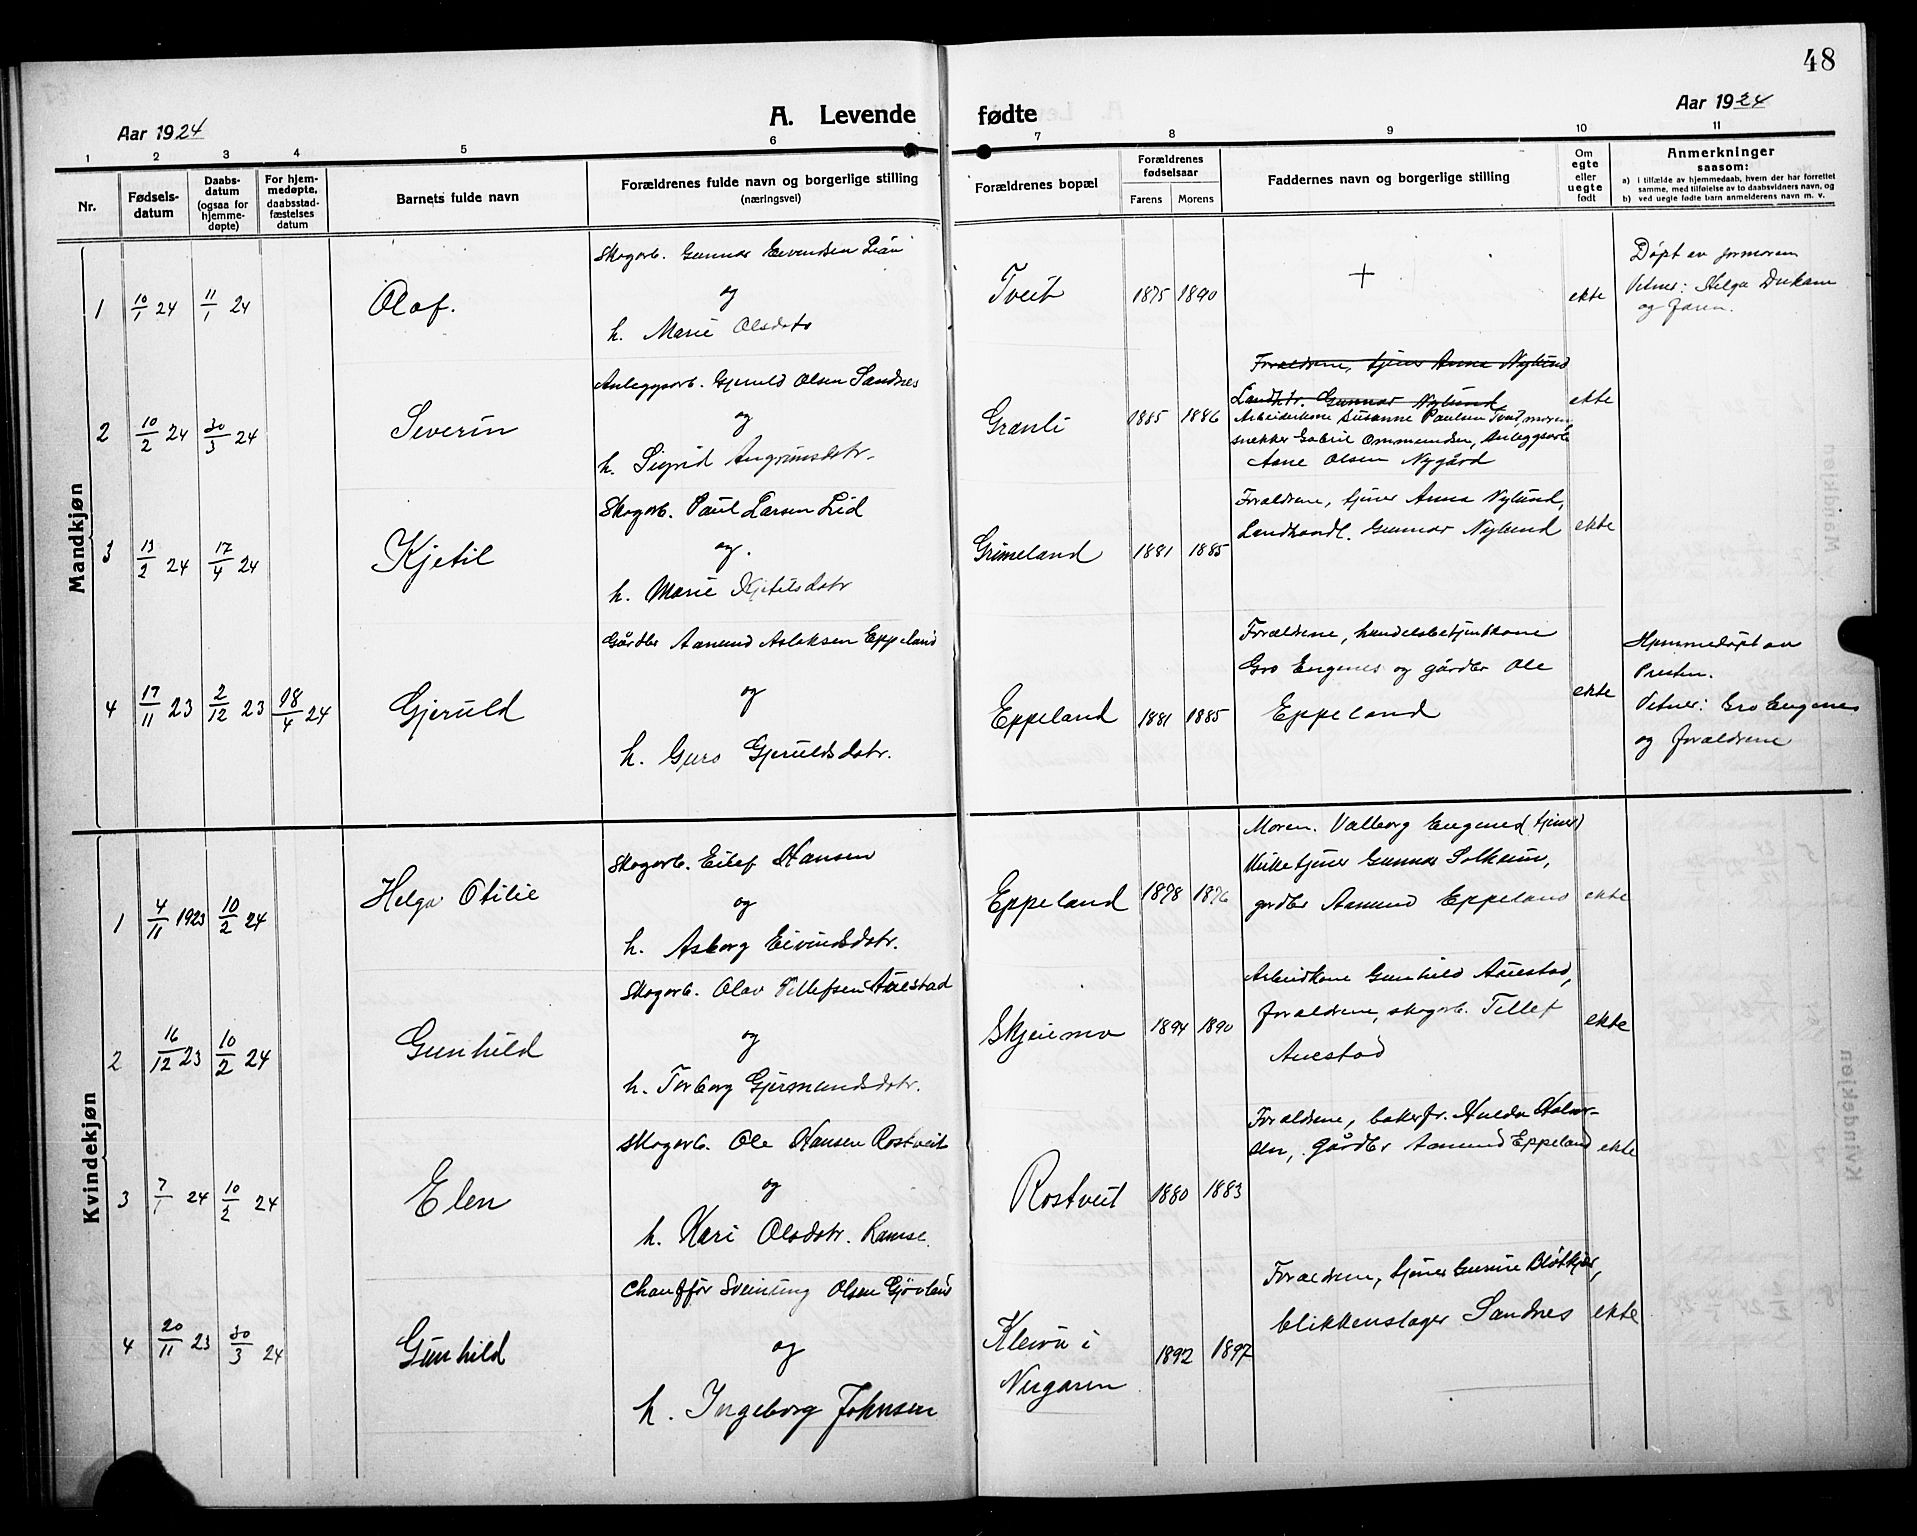 48
Aar 1924
A. Levende fødte
Aar 1924
1 2 3 4 5 6 7 8 9 10 11
Nr.
Fødsels-
datum
Daabs-
datum
(ogsaa for
hjemme-
døpte)
For hjem-
medøpte,
daabsstad-
fæstelses
datum
Barnets fulde navn
Forældrenes fulde navn og borgerlige stilling
(næringsvei)
Forældrenes bopæl
Forældrenes
fødselsaar
Farens Morens
Faddernes navn og borgerlige stilling
Om
egte
eller
uegte
født
Anmerkninger
saasom:
a) i tilfælde av hjemmedaab, hvem der har forrettet
samme, med tilføielse av to daabsvidners navn, og
b) ved uegte fødte barn anmelderens navn m. v.
Mandkjøn
1 10/1 24 11/1 24
Olaf.
Skogarb. Gunnar Eivendsen Liân
og
h. Marie Olsdotr
Tveit
1875 1890
+
ekte
Døpt av jormoren
Vitner: Helga
og faren.
2 10/2 24 30/3 24
Severin
Anleggsarb. Gjeruld Olsen Sandnes
og
h. Sigrid Angrimsdotr.
Granli
1885 1886
Foraldrene, tjener Anna Nylund
Landhdr. Gunnar Nylund
Arbeiderkone Susanne Paulsen Tveit, moren,
snekker Gabriel Ommundsen, Anleggsarb.
Aane Olsen Nygård
ekte
3 13/2 24 17/4 24
Kjetil
Skogarb. Paul Larsen Lid
og.
h. Marie Kjetilsdotr
Grimeland
1881 1885
Foraldrene, tjener Anna Nylund,
Landhandl. Gunnar Nylund
ekte
4 17/11 23 2/12 23 18/4 24
Gjeruld
Gårdbr Aamund Aslaksen Eppeland
og
h. Guro Gjeruldsdotr.
Eppeland
1881 1885
Foraldrene, handelsbetjentkone
Gro Engenes og gårdbr Ole
Eppeland
ekte
Hjemmedøpt av
Presten.
Vitner: Gro Engenes
og foraldrene
Kvindekjøn
1 4/11 1923 10/2 24
Helga Otilie
Skogarb. Eilef Hansen
og
h. Asborg Eivindsdotr.
Eppeland
1878 1876
Moren. Valborg Engenes (tjener)
Kirketjener Gunnar Solheim,
gardbr Aamund Eppeland
ekte
2 16/12 23 10/2 24
Gunhild
Skogarb. Olav Tellefsen Auestad
og
h. Torborg Gjermundsdotr.
Skjeimo
1894 1890
Arbeidkone Gunhild Auestad,
foraldrene, skogarb. Tellef
Auestad
ekte
3 7/1 24 10/2 24
Elen
Skogarb. Ole Hansen Rostveit
og
h. Kari Olsdotr. Ramse.
Rostveit
1880 1883
Foraldrene, bakerfr. Hulda Halvor-
sen, Gårdbr Aamund Eppeland
ekte
4 20/11 23 30/3 24
Gunhild
Chauffør Sveinung Olsen Gjøvland
og
h. Ingeborg Johnsen
Kleivu i
Nergaren
1892 1897
Foraldrene, tjener Gunnie Bløtkjær,
blikkenslager Sandnes
ekte